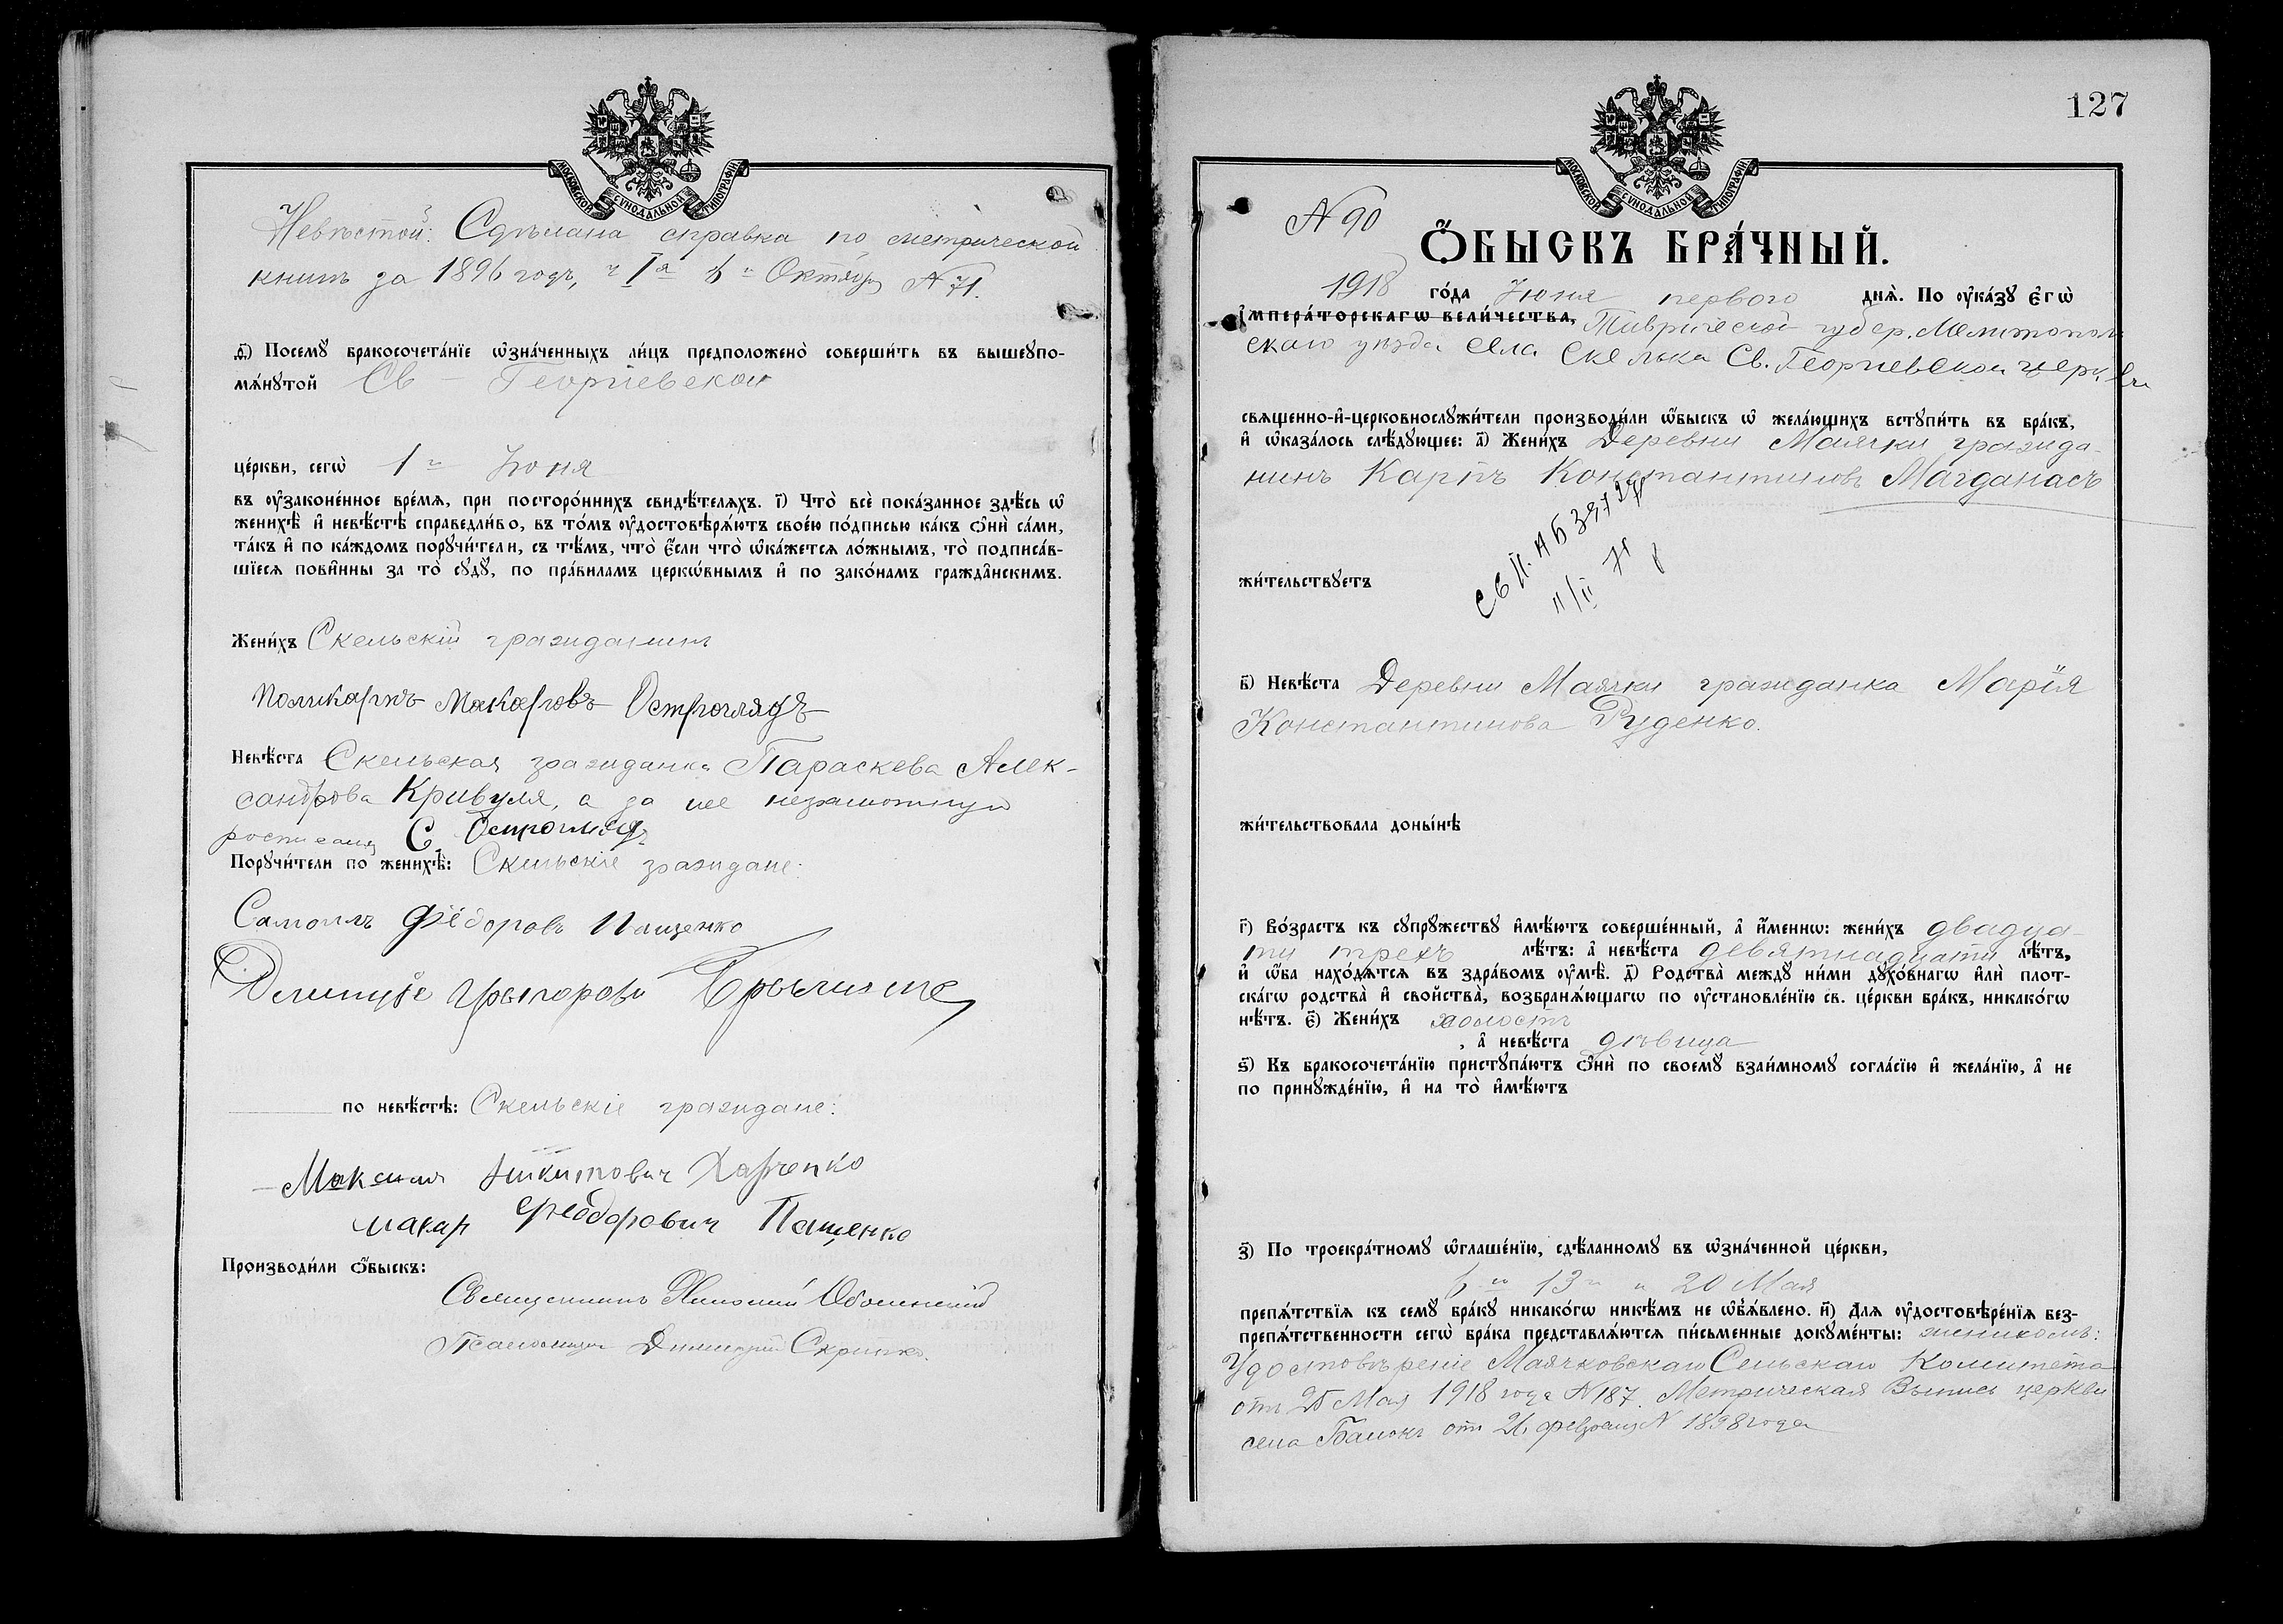 МОСКОВСКОЙ СѴНОДАЛЬНОЙ ТИПОГРАФІИ
Невѣстой: Сдѣлана справка по метрической
книгѣ за 1896 годъ, ч Iя Октябрь N 71.
д҃) Посемꙋ̀ бракосочета́нїе ѡ҆зна́ченныхъ ли́цъ предположено̀ соверши́ть въ вышеупо-
мѧ́нꙋтой Св - Георгіевской
це́ркви, сегѡ̀ 1го Іюня
въ ᲂу҆законе́нное вре́мѧ, при посторо́ннихъ свидѣ́телѧхъ. і҃) Что̀ всѐ пока́занное здѣ́сь ѡ҆
женихѣ̀ и҆ невѣ́стѣ справедли́во, въ то́мъ ᲂу҆достовѣрѧ́ютъ свое́ю по́дписью ка́къ ѻ҆нѝ са́ми,
та́къ и҆ по ка́ждомъ порꙋчи́тели, съ тѣ́мъ, что̀ є҆́сли что̀ ѡ҆ка́жетсѧ ло́жнымъ, то̀ подписа́в-
шїесѧ пови́нны за то̀ сꙋдꙋ̀, по пра́виламъ церкѡ́внымъ и҆ по зако́намъ гражда́нскимъ.
Жени́хъ Скельскій гражданинъ
Поликарпъ Макаровъ Остроглядъ
Невѣ́ста Скельская гражданка Параскева Алек-
сандрова Кривуля, а за нее неграмотную
С. Остроглядъ
Порꙋчи́тели по женихѣ̀: Скельскіе граждане:
Самоилъ Фёдоровъ Пащенко
по невѣ́стѣ: Скельскіе граждане:
Максимъ Никитовичъ Харченко
макар Феодорович Пащенко
Производи́ли ѻ҆́быскъ:
Священникъ Оболенскій
Псаломщикъ Димитрій Скрипка.
127
МОСКОВСКОЙ СѴНОДАЛЬНОЙ ТИПОГРАФІИ
N 90
Ѻ҆́БЫСКЪ БРА́ЧНЫЙ.
1918 го́да Іюня перваго днѧ̀. По ᲂу҆ка́зꙋ є҆гѡ̀
и҆мпера́торскагѡ вели́чества, Таврической губер. Мелитополь
скаго уѣзда села Скелька Св. Георгіевской церкви
свѧщенно-и҆-церковнослꙋжи́тели производи́ли ѻ҆́быскъ ѡ҆ жела́ющихъ встꙋпи́ть въ бра́къ,
и҆ ѡ҆каза́лось слѣ́дꙋющее: а҃) Жени́хъ Деревни Маячки гражда-
нинъ Карпъ Константиновъ Магданасъ
жи́тельствꙋетъ
11/II 71
в҃) Невѣ́ста Деревни Маячки гражданка Марія
Константинова Руденко.
жи́тельствовала доны́нѣ
г҃) Во́зрастъ къ сꙋпрꙋ́жествꙋ и҆мѣ́ютъ соверше́нный, а҆ и҆́меннѡ: жени́хъ двадца-
ти трехъ лѣ́тъ: а҆ невѣ́ста девятнадцати лѣ́тъ,
и҆ ѻ҆́ба нахо́дѧтсѧ въ здра́вомъ ᲂу҆мѣ̀. д҃) Родства̀ междꙋ̀ ни́ми дꙋхо́внагѡ и҆лѝ плот-
ска́гѡ родства̀ и҆ свойства̀, возбранѧ́ющагѡ по ᲂу҆становле́нїю св. це́ркви бра́къ, никако́гѡ
нѣ́тъ. є҃) Жени́хъ холостъ
, а҆ невѣ́ста дѣвица
ѕ҃) Къ бракосочета́нїю пристꙋпа́ютъ ѻ҆нѝ по своемꙋ̀ взаи́мномꙋ согла́сїю и҆ жела́нїю, а҆ не
по принꙋжде́нїю, и҆ на то̀ и҆мѣ́ютъ
з҃) По троекра́тномꙋ ѡ҆глаше́нїю, сдѣ́ланномꙋ въ ѡ҆зна́ченной це́ркви,
6го 13го и 20 Мая
препѧ́тствїѧ къ семꙋ̀ бра́кꙋ никако́гѡ никѣ́мъ не ѡ҆бꙗ́влено. и҃) Длѧ ᲂу҆достовѣре́нїѧ без-
препѧ́тственности сегѡ̀ бра́ка представлѧ́ютсѧ пи́сьменные докꙋме́нты: женихомъ:
Удостовѣреніе Маячковскаго Сельскаго Комитета
отъ 25 Мая 1918 года N 187. Метрическая Выпись церкви
села Балокъ отъ 26 февраля N 1898 года